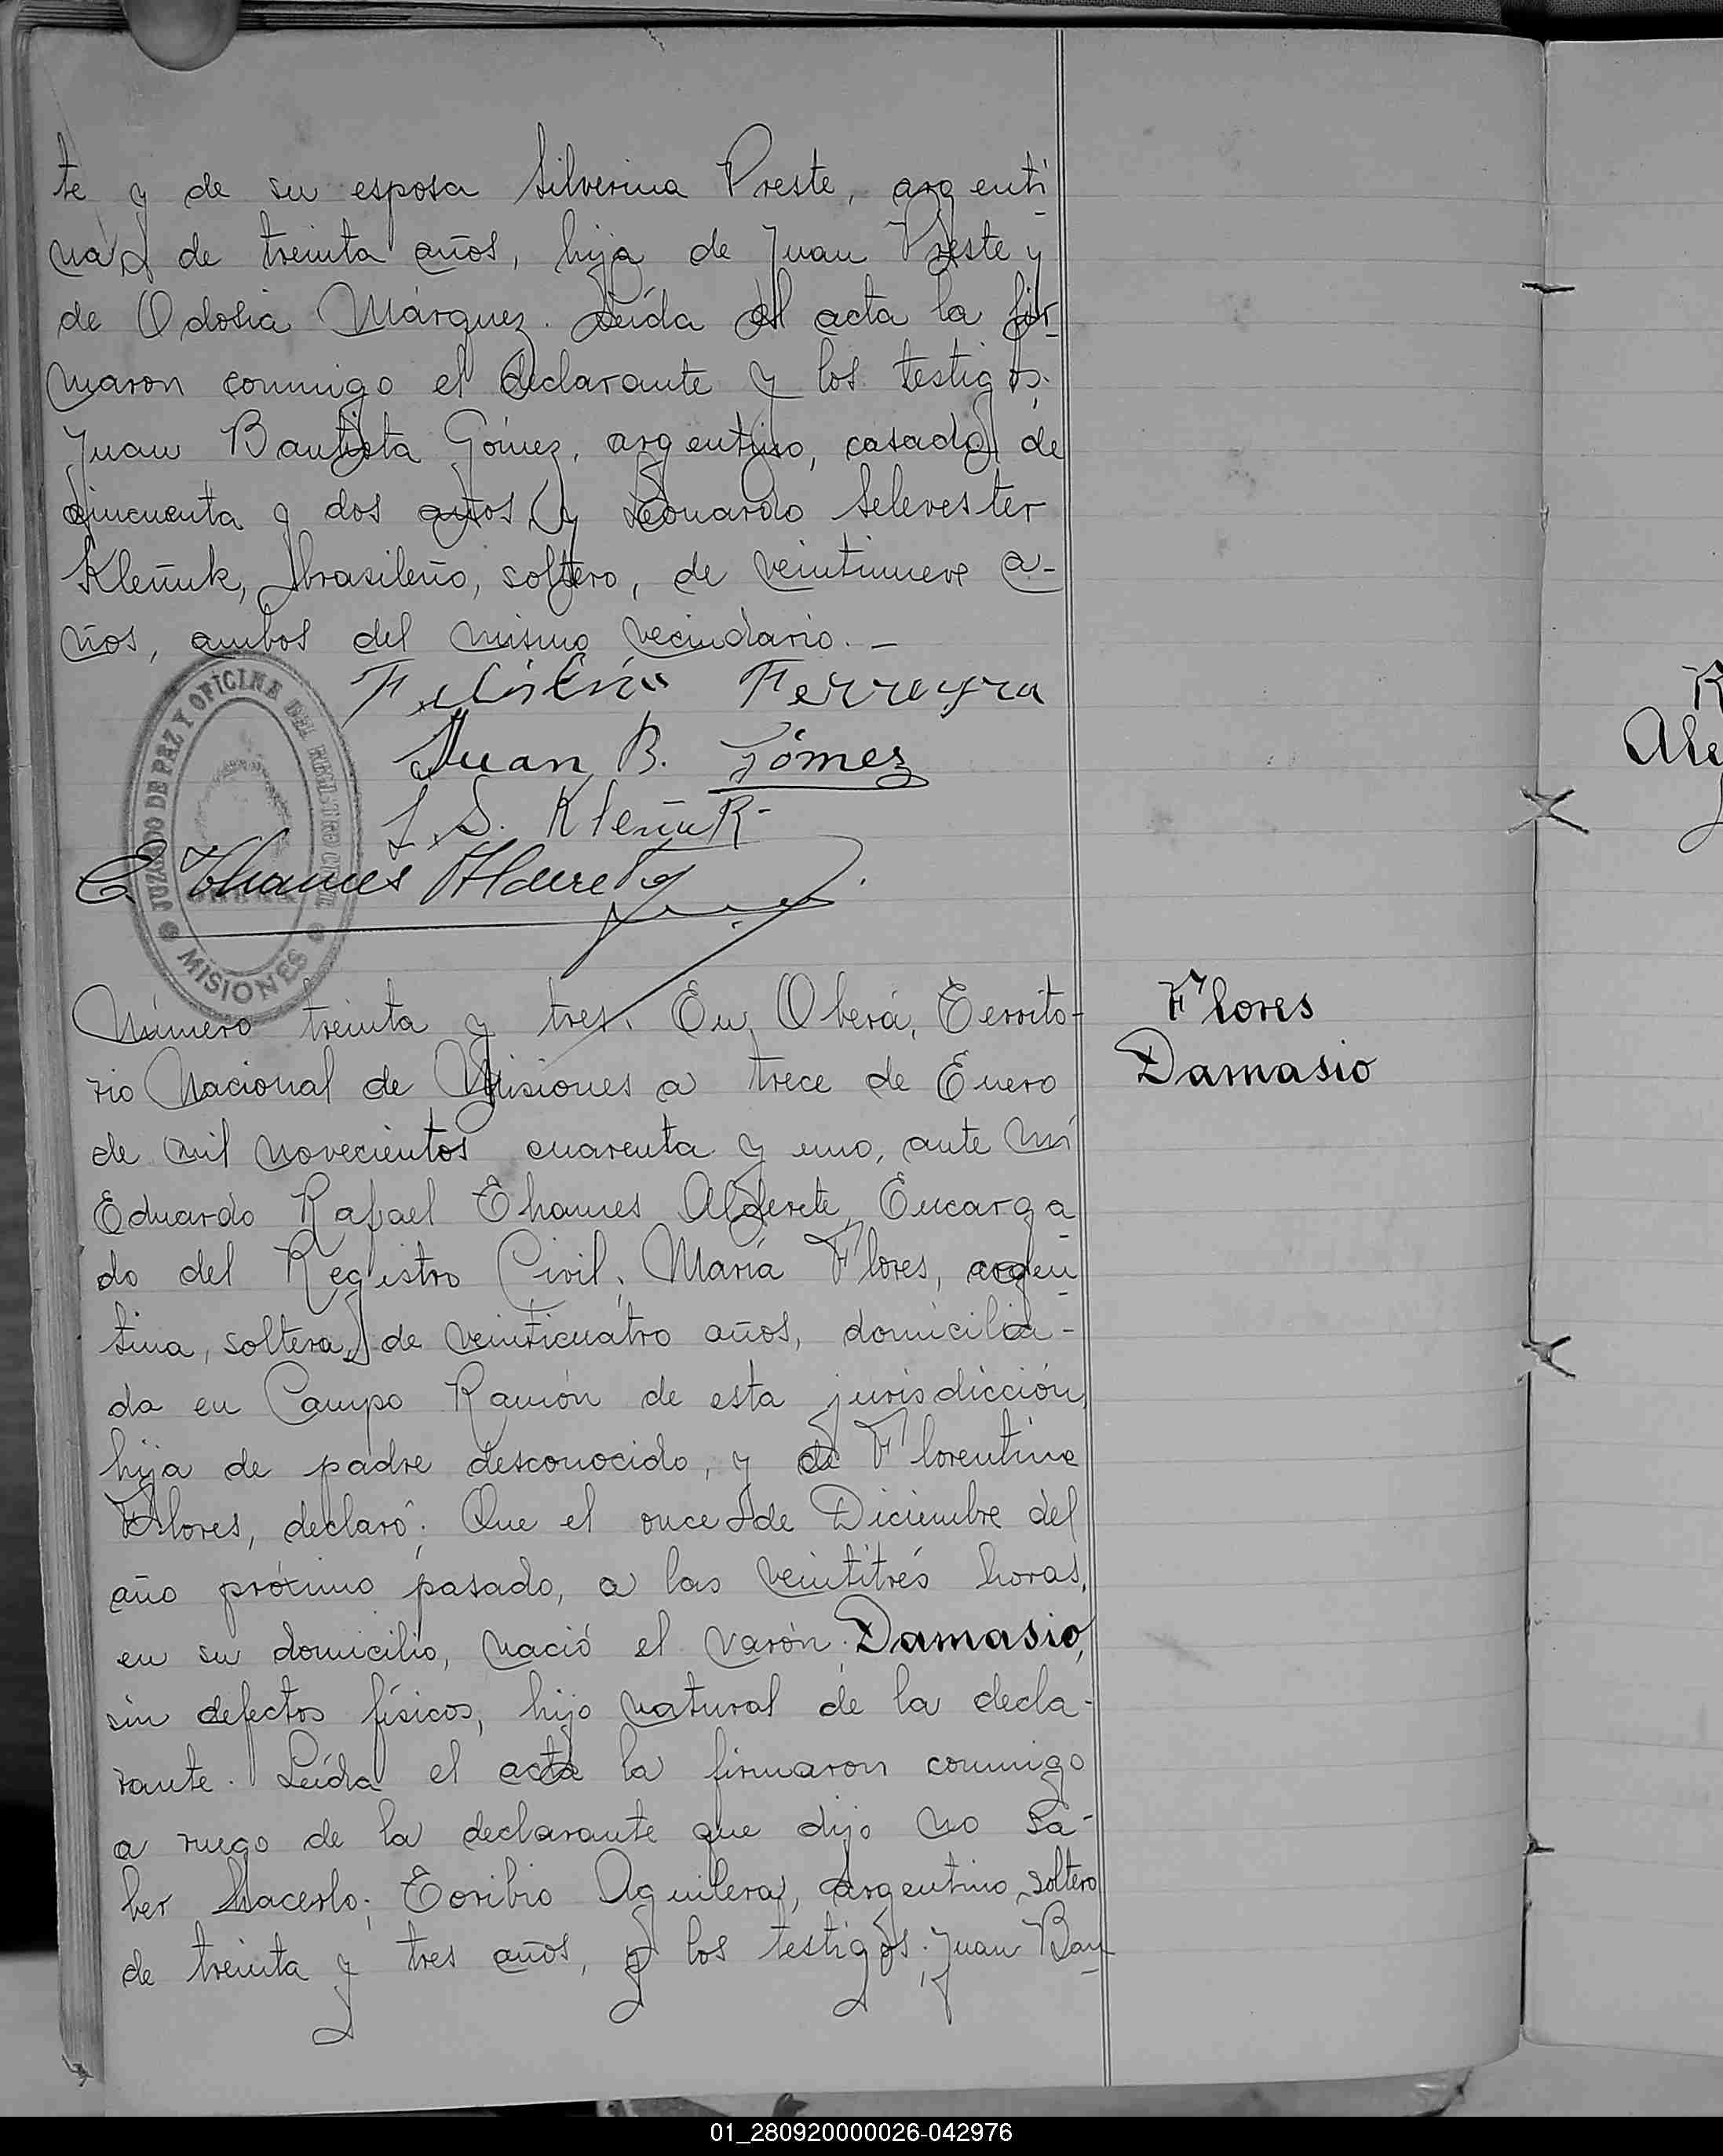 te y de su esposa Silverina Preste, argenti
na, de treinta años, hija de Juan Preste y
de Odosia Márquez. Leída el acta la fir-
maron conmigo el declarante y los testigos:
Juan Bautista Gómez, argentino, casado, de
cincuenta y dos años y Leonardo Selevester
Kleñuk, brasileño, soltero, de veintinueve a-
ños, ambos del mismo vecindario.—
Ferreyra
Juan B. Gómez
L. S. Kleñuk
E. Thames Alderete
JUZGADO DE PAZ Y OFICINA DEL REGISTRO CIVIL
MISIONES
Número treinta y tres. En Oberá, Territo-
rio Nacional de Misiones a trece de Enero
de mil novecientos cuarenta y uno, ante mí
Eduardo Rafael Thames Alderete, Encarga
do del Registro Civil; María Flores, argen
tina, soltera, de veinticuatro años, domicilia-
da en Campo Ramón de esta jurisdicción,
hija de padre desconocido, y de Florentina
Flores, declaró: Que el once de Diciembre del
año próximo pasado, a las veintitrés horas,
en su domicilio, nació el varón: Damasio,
sin defectos físicos, hijo natural de la decla-
rante. Leída el acta la firmaron conmigo
a ruego de la declarante que dijo no sa-
ber hacerlo: Toribio Aguilera, argentino, soltero
de treinta y tres años, y los testigos: Juan Bau
Flores
Damasio
R
Ale
01_280920000026-042976